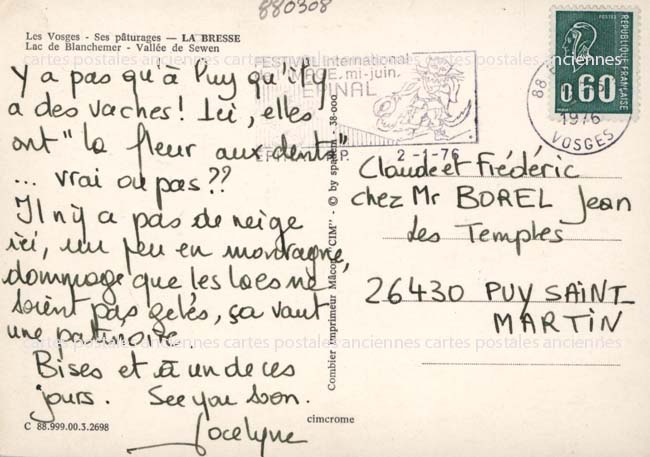 880308
Les Vosges - Ses pâturages — LA BRESSE
Lac de Blanchemer - Vallée de Sewen
Y a pas qu'à Puy qu'il y
a des vaches! Ici, elles
ont "la fleur aux dents"
... vrai ou pas??
Il n'y a pas de neige
ici, un peu en montagne,
dommage que les lacs ne
soient pas gelés, ça vaut
une patinoire.
Bises et à un de ces
jours. See you soon.
Jocelyne
C 88.999.00.3.2698
cimcrome
Combier Imprimeur Mâcon "CIM" - © by spadem - 38-000
International
E. mi-juin.
EPINAL
R.P. 2-1-76
88
1976
VOSGES
POSTES
RÉPUBLIQUE FRANÇAISE
0,60
Claude et Frédéric
chez Mr BOREL Jean
Les Temples
26430 PUY SAINT-
MARTIN
cartes postales anciennes cartes postales anciennes cartes postales anciennes